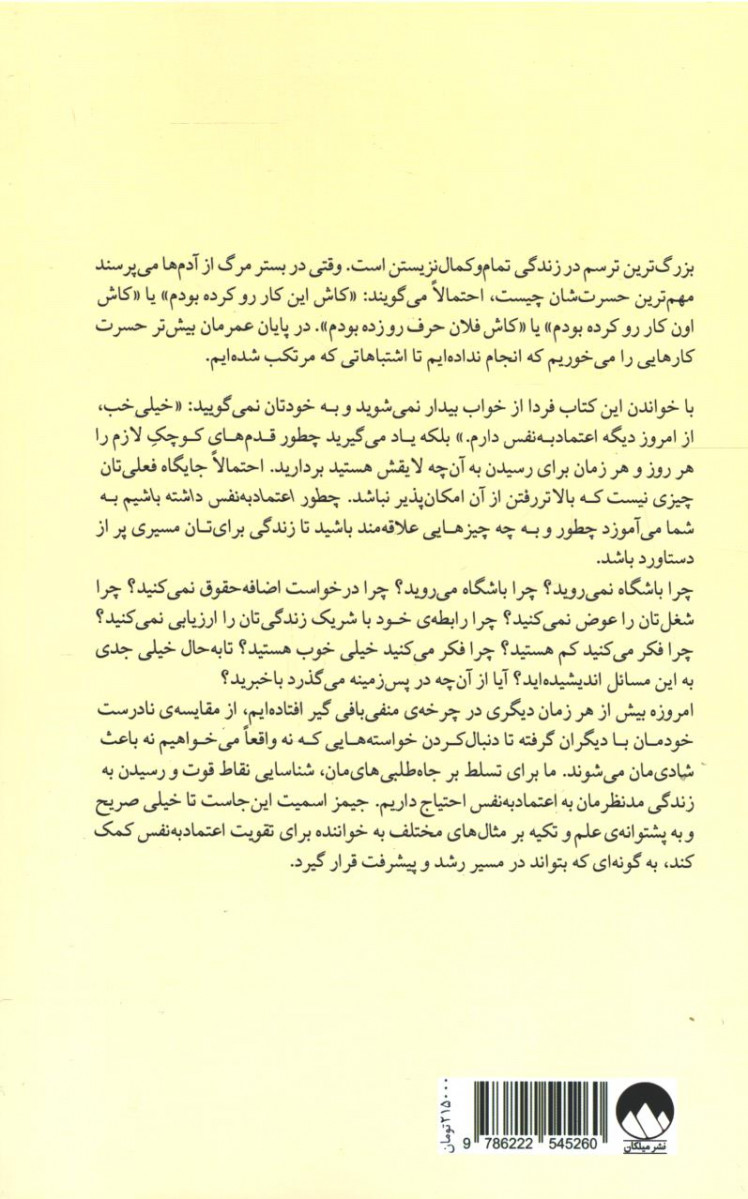 بزرگ‌ترین ترسم در زندگی تمام‌وکمال‌نزیستن است. وقتی در بستر مرگ از آدم‌ها می‌پرسند
مهم‌ترین حسرت‌شان چیست، احتمالاً می‌گویند: «کاش این کار رو کرده بودم» یا «کاش
اون کار رو کرده بودم» یا «کاش فلان حرف رو زده بودم». در پایان عمرمان بیش‌تر حسرت
کارهایی را می‌خوریم که انجام نداده‌ایم تا اشتباهاتی که مرتکب شده‌ایم.
با خواندن این کتاب فردا از خواب بیدار نمی‌شوید و به خودتان نمی‌گویید: «خیلی‌خب،
از امروز دیگه اعتمادبه‌نفس دارم.» بلکه یاد می‌گیرید چطور قدم‌های کوچکِ لازم را
هر روز و هر زمان برای رسیدن به آن‌چه لایقش هستید بردارید. احتمالاً جایگاه فعلی‌تان
چیزی نیست که بالاتررفتن از آن امکان‌پذیر نباشد. چطور اعتمادبه‌نفس داشته باشیم به
شما می‌آموزد چطور و به چه چیزهایی علاقه‌مند باشید تا زندگی برای‌تان مسیری پر از
دستاورد باشد.
چرا باشگاه نمی‌روید؟ چرا باشگاه می‌روید؟ چرا درخواست اضافه‌حقوق نمی‌کنید؟ چرا
شغل‌تان را عوض نمی‌کنید؟ چرا رابطه‌ی خود با شریک زندگی‌تان را ارزیابی نمی‌کنید؟
چرا فکر می‌کنید کم هستید؟ چرا فکر می‌کنید خیلی خوب هستید؟ تابه‌حال خیلی جدی
به این مسائل اندیشیده‌اید؟ آیا از آن‌چه در پس‌زمینه می‌گذرد باخبرید؟
امروزه بیش از هر زمان دیگری در چرخه‌ی منفی‌بافی گیر افتاده‌ایم، از مقایسه‌ی نادرست
خودمان با دیگران گرفته تا دنبال‌کردن خواسته‌هایی که نه واقعاً می‌خواهیم نه باعث
شادی‌مان می‌شوند. ما برای تسلط بر جاه‌طلبی‌های‌مان، شناسایی نقاط قوت و رسیدن به
زندگی مدنظرمان به اعتمادبه‌نفس احتیاج داریم. جیمز اسمیت این‌جاست تا خیلی صریح
و به پشتوانه‌ی علم و تکیه بر مثال‌های مختلف به خواننده برای تقویت اعتمادبه‌نفس کمک
کند، به گونه‌ای که بتواند در مسیر رشد و پیشرفت قرار گیرد.
۲۱۵۰۰۰ تومان
9 786222 545260
نشر میلکان